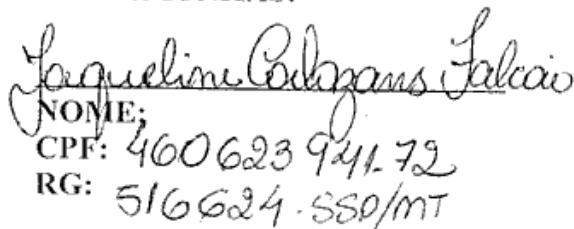 Jaqueline Calazans Falcão
NOME;
CPF: 460 623 941-72
RG: 516624-SSP/MT